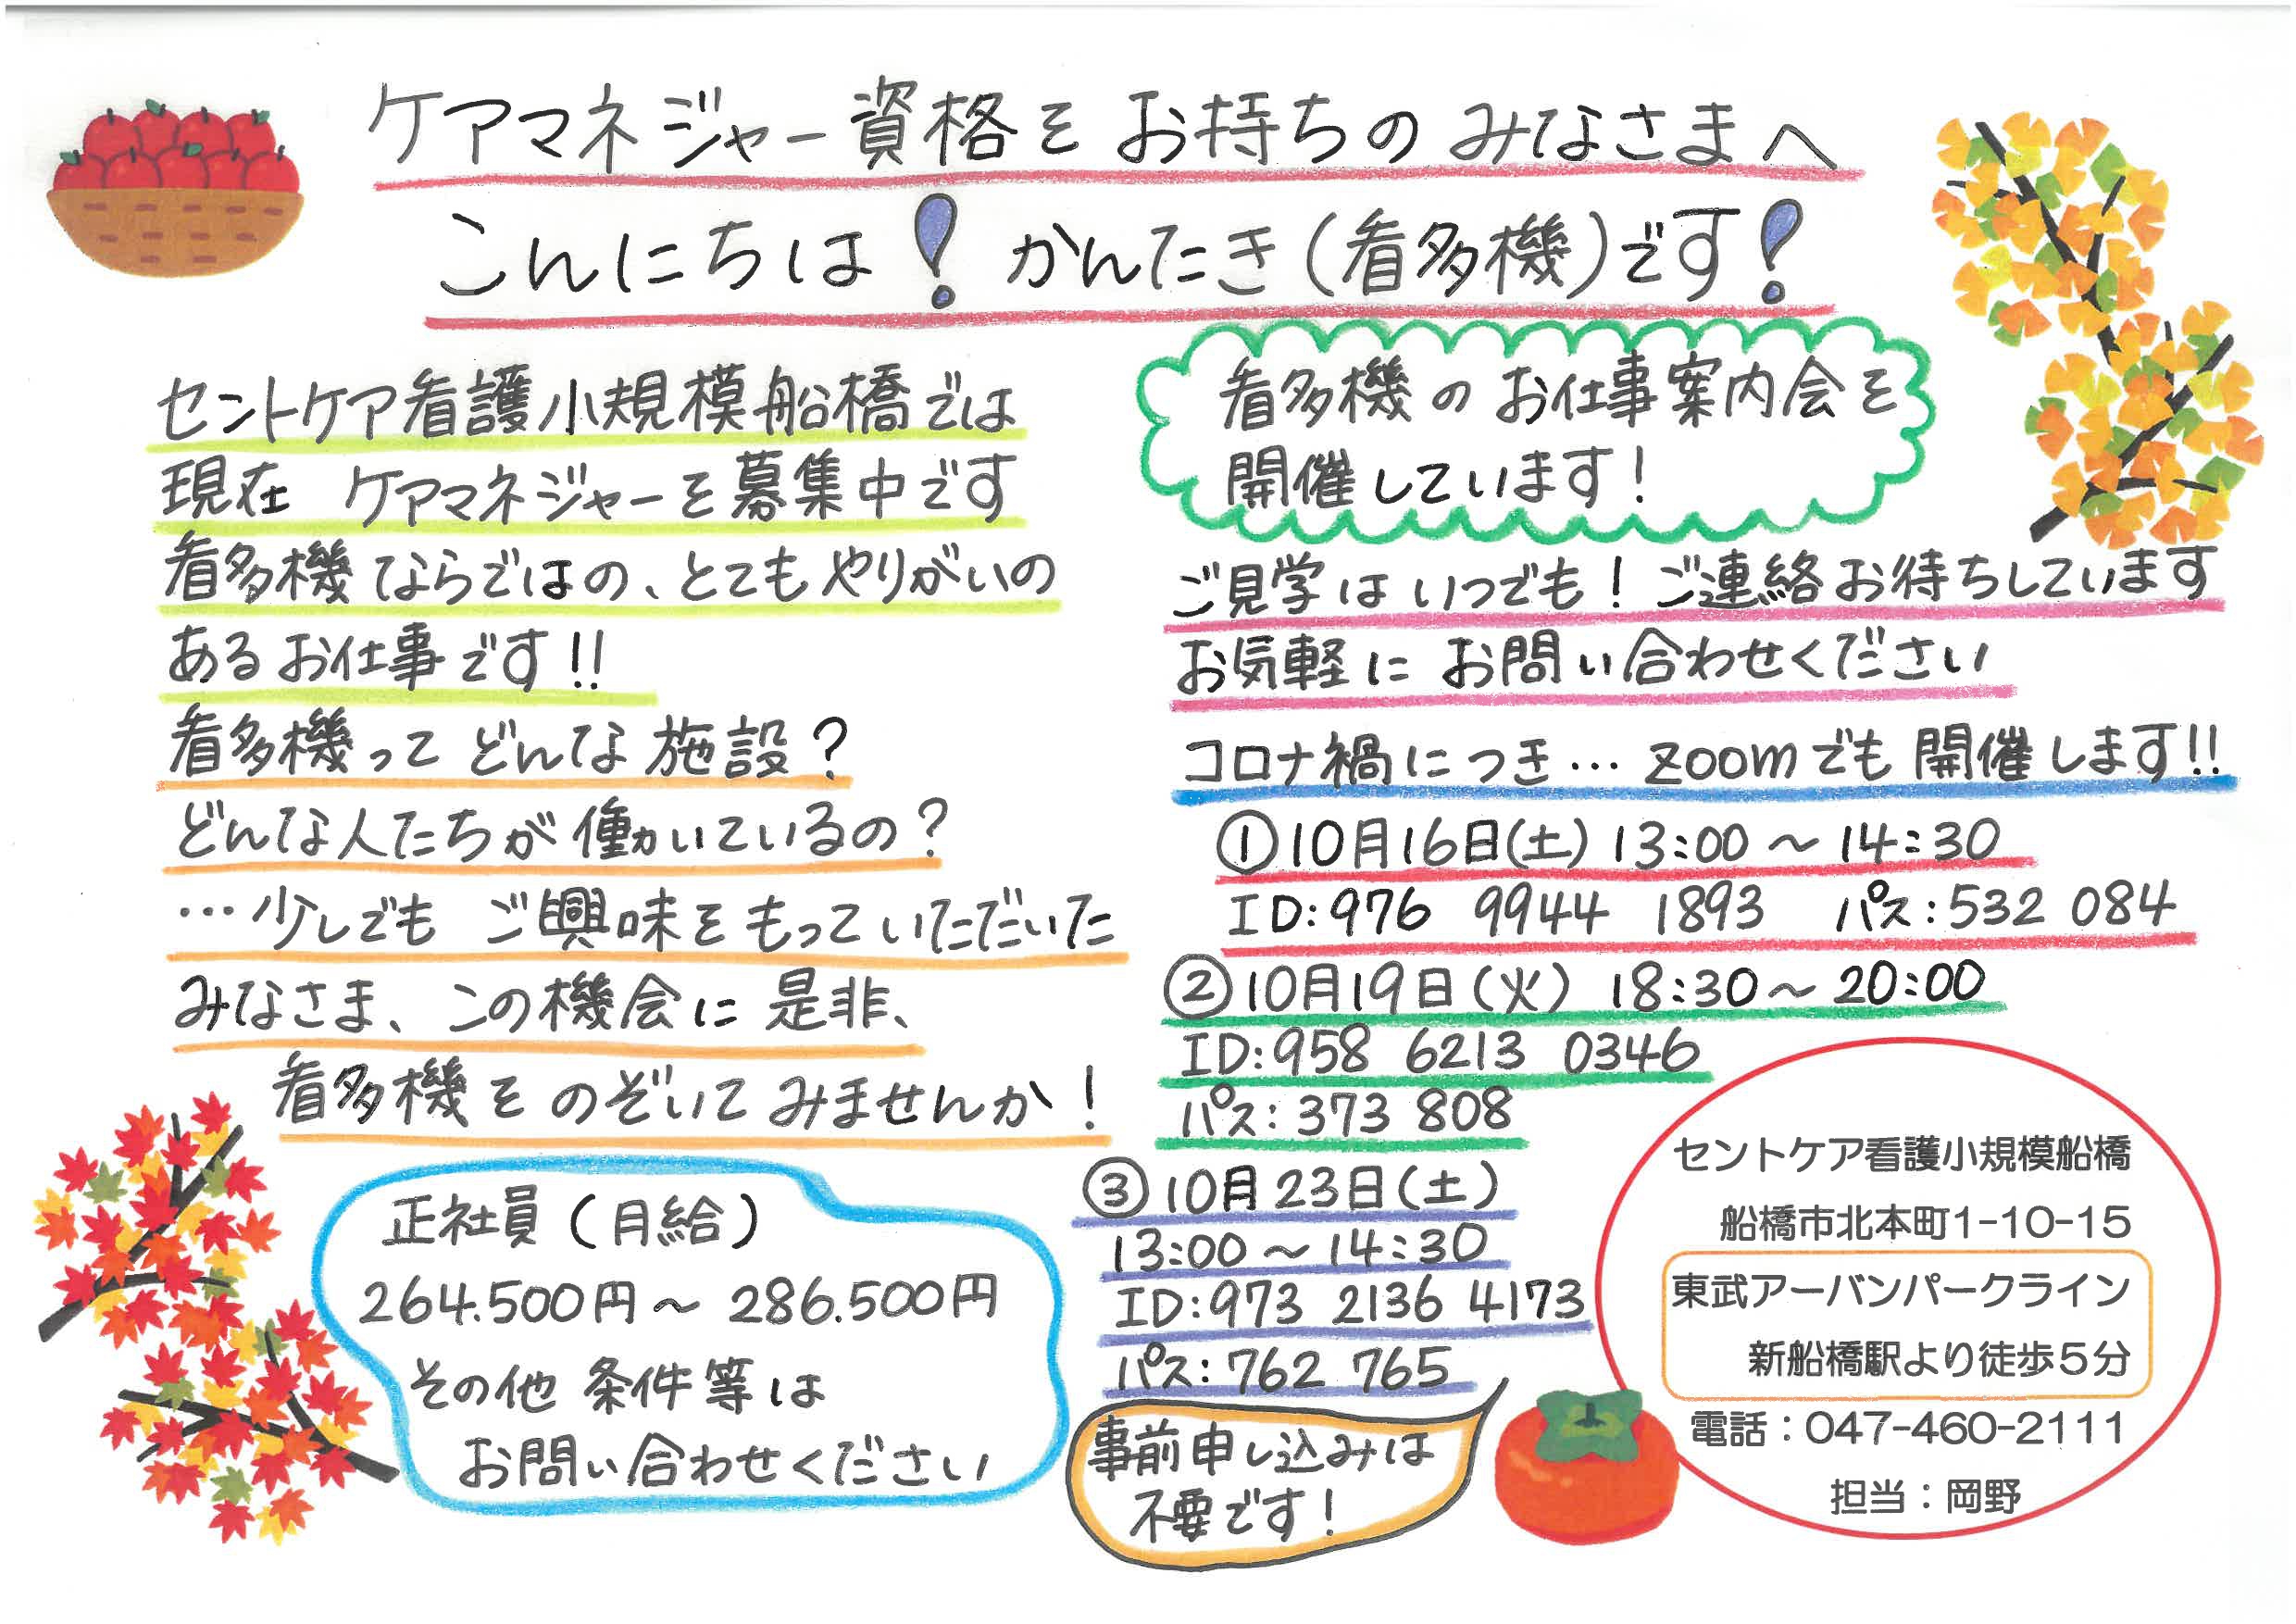 ケアマネジャー資格をお持ちのみなさまへ
こんにちは！かんたき(看多機)です！
セントケア看護小規模船橋では
現在 ケアマネジャーを募集中です
看多機ならではの、とてもやりがいの
あるお仕事です!!
看多機ってどんな施設？
どんな人たちが働いているの？
…少しでも ご興味をもっていただいた
みなさま、この機会に是非、
看多機をのぞいてみませんか！
正社員(月給)
264.500円～286.500円
その他 条件等は
お問い合わせください
看多機のお仕事案内会を
開催しています！
ご見学はいつでも！ご連絡お待ちしています
お気軽にお問い合わせください
コロナ禍につき…zoomでも開催します!!
①10月16日(土) 13:00～14:30
ID:976 9944 1893 パス:532 084
②10月19日(火) 18:30～20:00
ID:958 6213 0346
パス:373 808
③10月23日(土)
13:00～14:30
ID:973 2136 4173
パス:762 765
事前申し込みは
不要です！
セントケア看護小規模船橋
船橋市北本町1-10-15
東武アーバンパークライン
新船橋駅より徒歩5分
電話：047-460-2111
担当：岡野